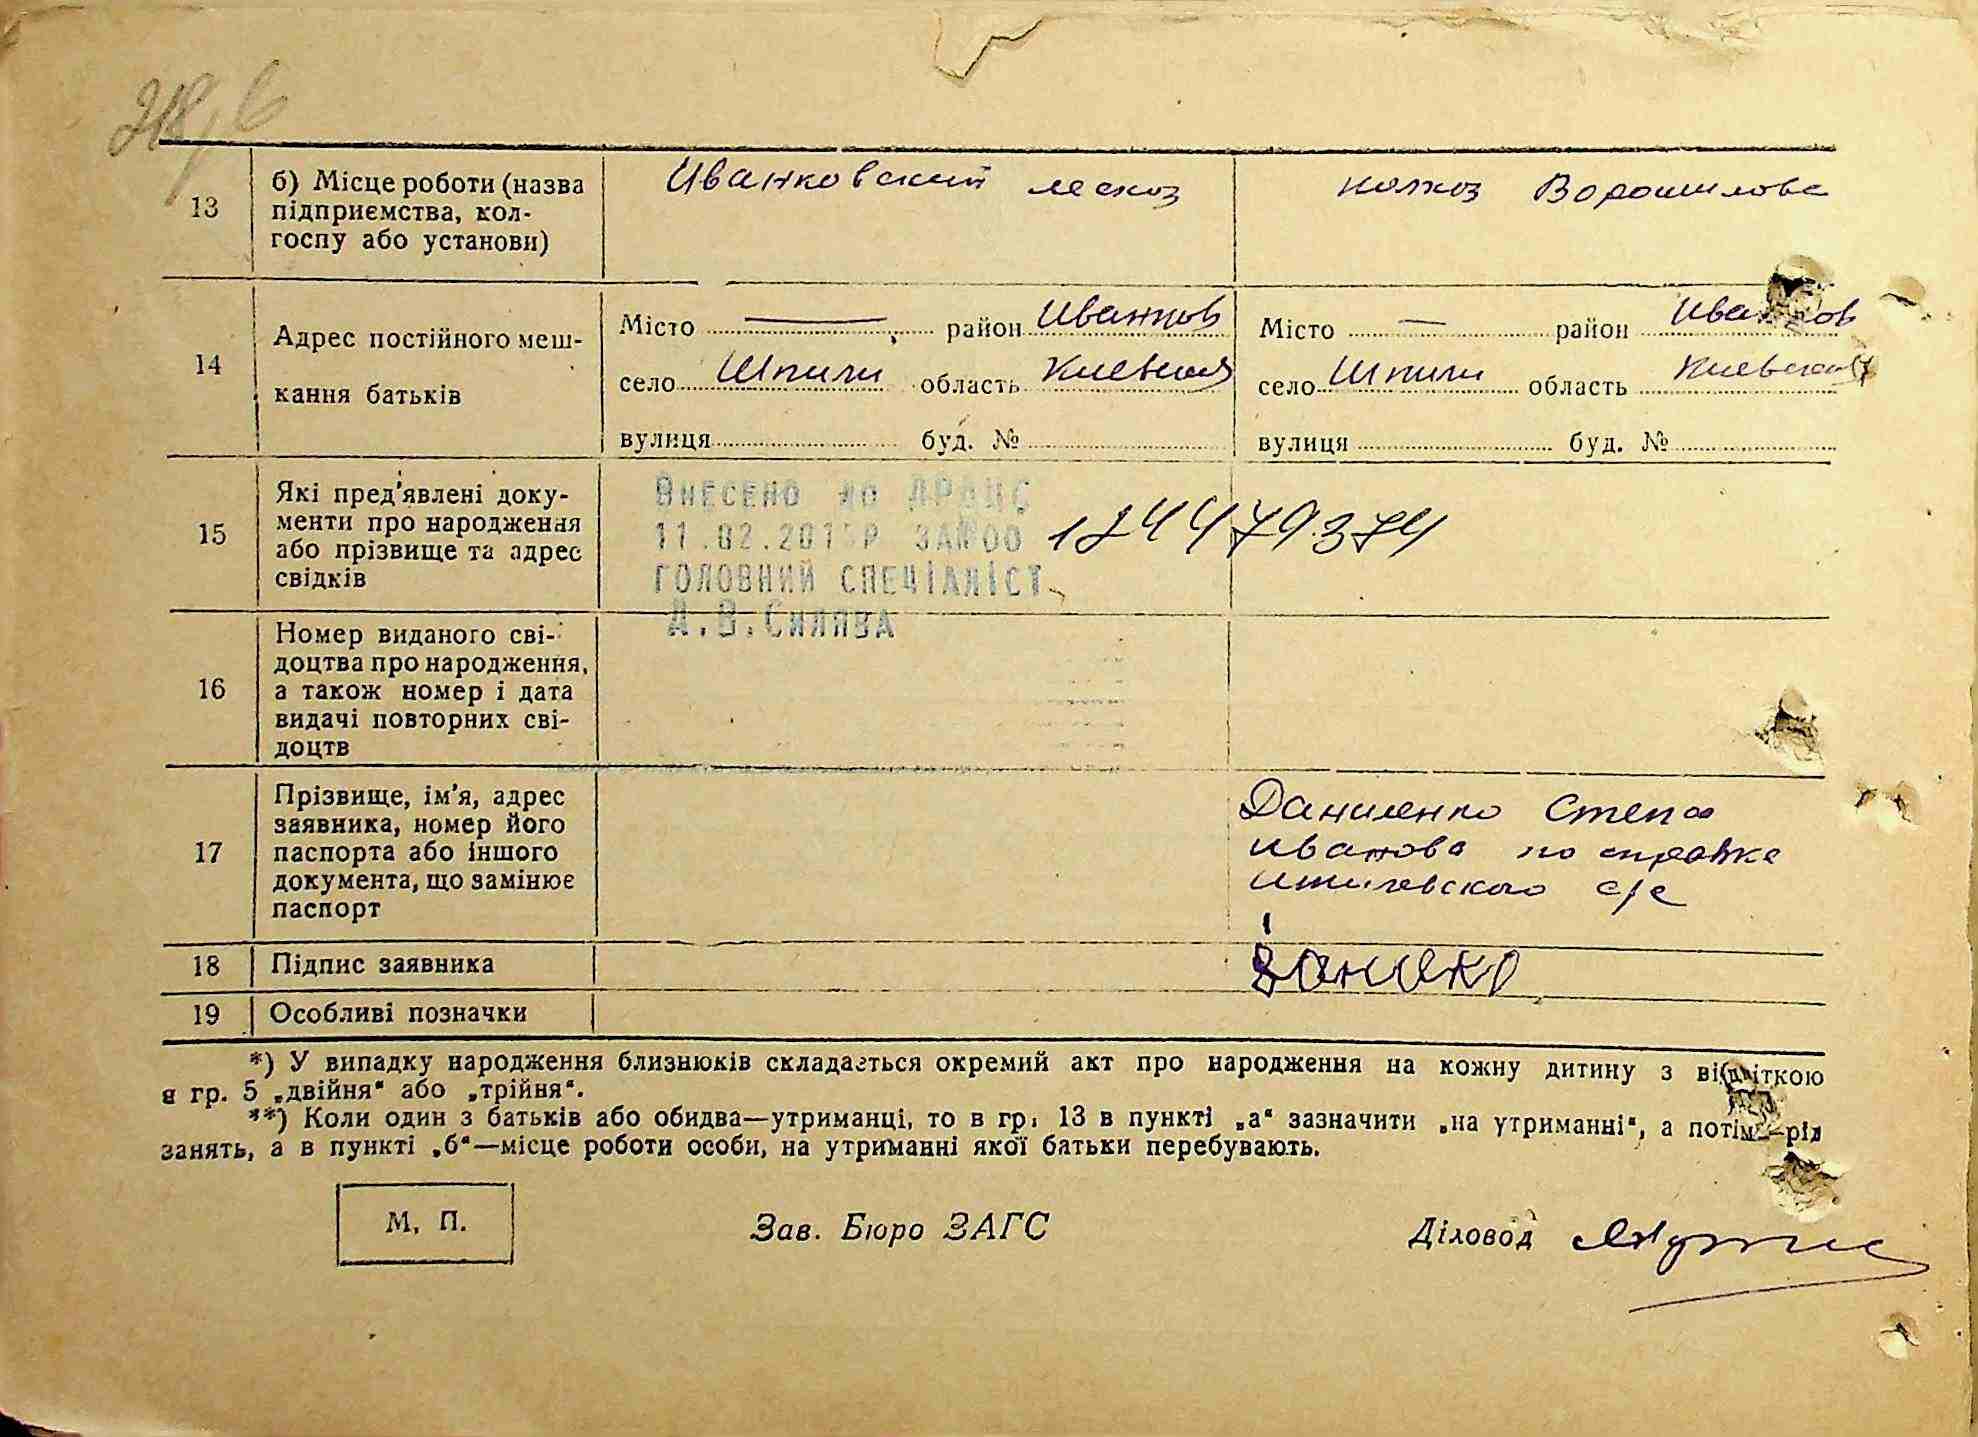 13
б) Місце роботи (назва
підприємства, кол-
госпу або установи)
Иванковский лесхоз
колхоз Ворошилова
14
Адрес постійного меш-
кання батьків
Місто — район Иванков
село Шпили область Киевская
вулиця буд. №
Місто — район Иванков
село Шпили область Киевская
вулиця буд. №
15
Які пред'явлені доку-
менти про народження
або прізвище та адрес
свідків
Внесено до ДРАЦС
ЗА №00 124479374
ГОЛОВНИЙ СПЕЦІАЛІСТ
16
Номер виданого сві-
доцтва про народження,
а також номер і дата
видачі повторних сві-
доцтв
17
Прізвище, ім'я, адрес
заявника, номер його
паспорта або іншого
документа, що замінює
паспорт
Даниленко Степа
Иванова по справке
Шпилевского с/с
18
Підпис заявника
19
Особливі позначки
*) У випадку народження близнюків складається окремий акт про народження на кожну дитину з відміткою
в гр. 5 „двійня“ або „трійня“.
**) Коли один з батьків або обидва—утриманці, то в гр. 13 в пункті „а“ зазначити „на утриманні“, а потім—рід
занять, а в пункті „б“—місце роботи особи, на утриманні якої батьки перебувають.
М. П.
Зав. Бюро ЗАГС
Діловод